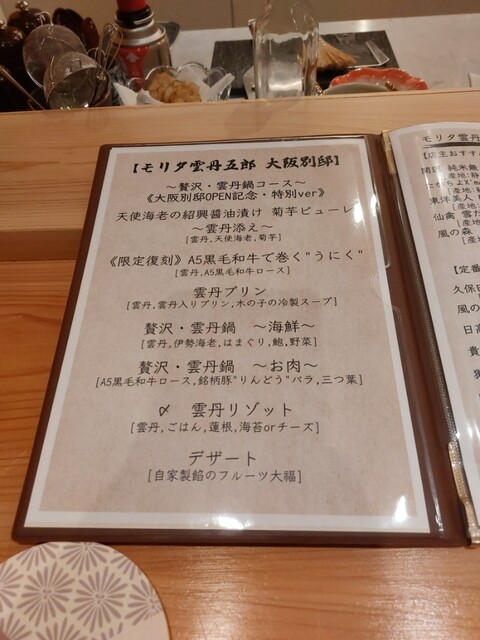 【モリタ雲丹五郎 大阪別邸】
～贅沢・雲丹鍋コース～
《大阪別邸OPEN記念・特別ver》
天使海老の紹興醬油漬け 菊芋ピューレ
～雲丹添え～
[雲丹,天使海老,菊芋]
《限定復刻》A5黒毛和牛で巻く"うにく"
[雲丹,A5黒毛和牛ロース]
雲丹プリン
[雲丹,雲丹入りプリン,木の子の冷製スープ]
贅沢・雲丹鍋 ～海鮮～
[雲丹,伊勢海老,はまぐり,鮑,野菜]
贅沢・雲丹鍋 ～お肉～
[A5黒毛和牛ロース,銘柄豚"りんどう"バラ,三つ葉]
〆 雲丹リゾット
[雲丹,ごはん,蓮根,海苔orチーズ]
デザート
[自家製餡のフルーツ大福]
モリタ雲丹
【店主おすす
純米
[産地:静
[産地:
東洋美人
[産地:
仙禽 雪だ
[産地:
風の森
[産地:
【定番
久保田
風の
日高
貴